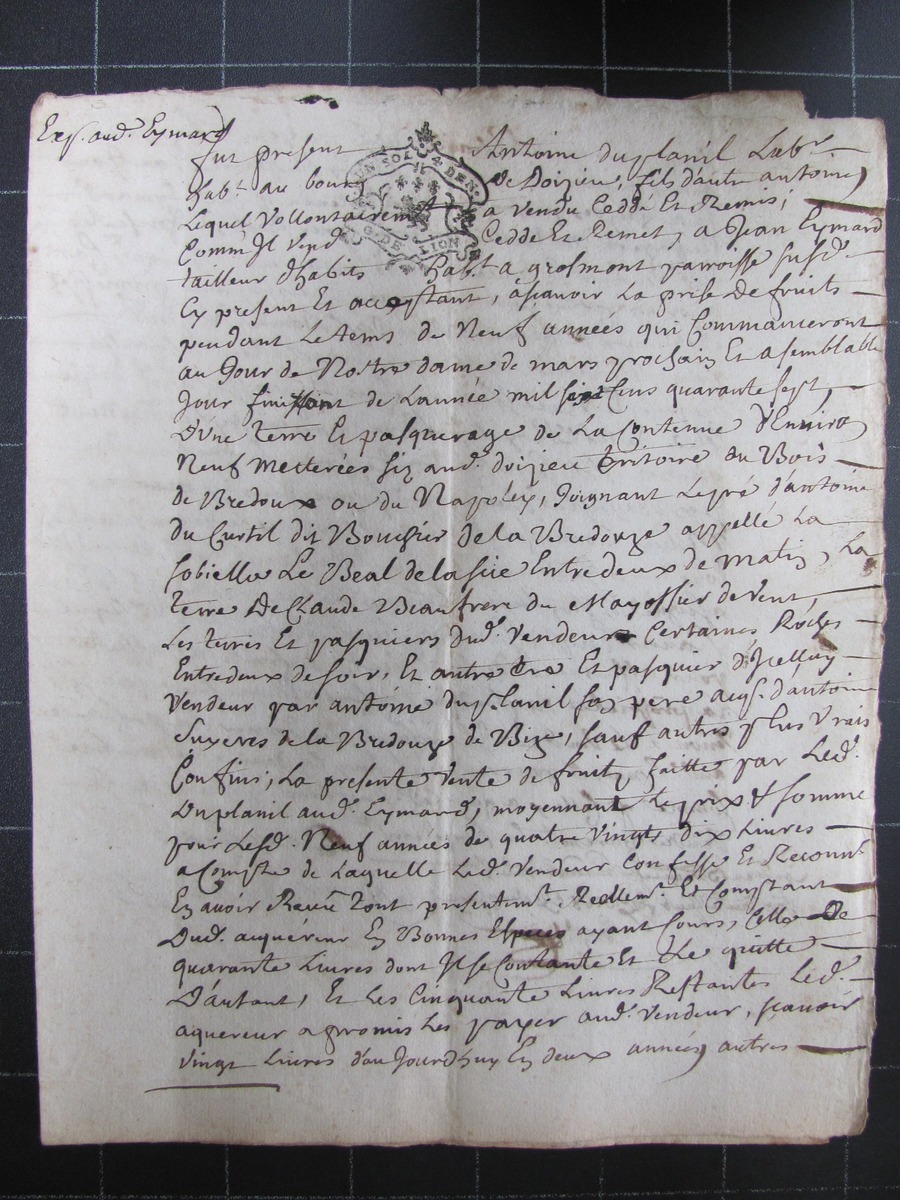 Exp. aud. Eymard
fut present Antoine duplanil Labr
habt. au bourg de Doizieu, fils d'autre antoine,
Lequel Vollontairement a vendu Ceddé Et Remis,
Comm Il vend Cedde Et Remet, a Jean Eymard
tailleur d'habits habt. a grosmont parroisse susd.
Cy present Et acceptant, ascavoir La prise de fruits
pendant Le tems de Neuf années qui Commanceront
au Jour de Nostre dame de mars prochain Et a semblable
Jour finissant de L'année mil sept Cens quarante sept,
D'une terre Et pasquerage de La Contenue d'Environ
Neuf metterées siz aud. doizieu territoire du Bois
de Bredoux ou du Napoley, Joignant Le pré d'antoine
du Curtil dit Bouchier de la Bredouze appellé La
sobiella Le Beal de la sie Entredeux de matin, La
terre De Claude Beaufrere du Mayossier de vent,
Les terres Et pasquiers dud. Vendeur Certaines Roches
Entredeux de soir, Et autre tre Et pasquier d'Icelluy
Vendeur par antoine duplanil son pere acqs. d'antoine
de la Bredouze de Bize, sauf autres plus Vrais
Confins, La presente Vente de fruits, faitte par Led.
Duplanil aud. Eymard, moyennant Le prix & somme
pour Lesd. Neuf années de quatre vingts dix Livres
a Compte de Laquelle Led. Vendeur Confesse Et Reconnt.
En avoir Receu tout presentemt. Reellemt. Et Comptant
Dud. acquereur En Bonnes Especes ayant Cours, Celle De
quarante Livres dont Il se Contante Et Le quitte
D'autant, Et Les Cinquante Livres Restantes Led.
aquereur a promis Les payer aud. Vendeur, scavoir
vingt Livres d'au Jourdhuy En deux années, autres
UN SOL 4 DEN.
G. DE LION